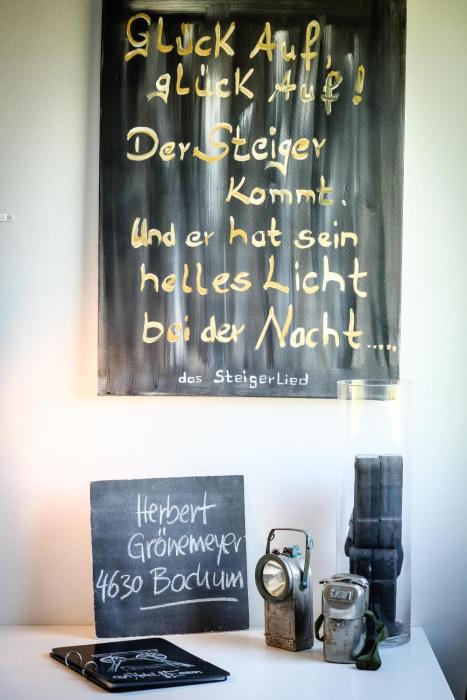 Glück Auf,
glück Auf!
Der Steiger
kommt.
Und er hat sein
helles Licht
bei der Nacht.....
das SteigerLied
Herbert
Grönemeyer
4630 Bochum